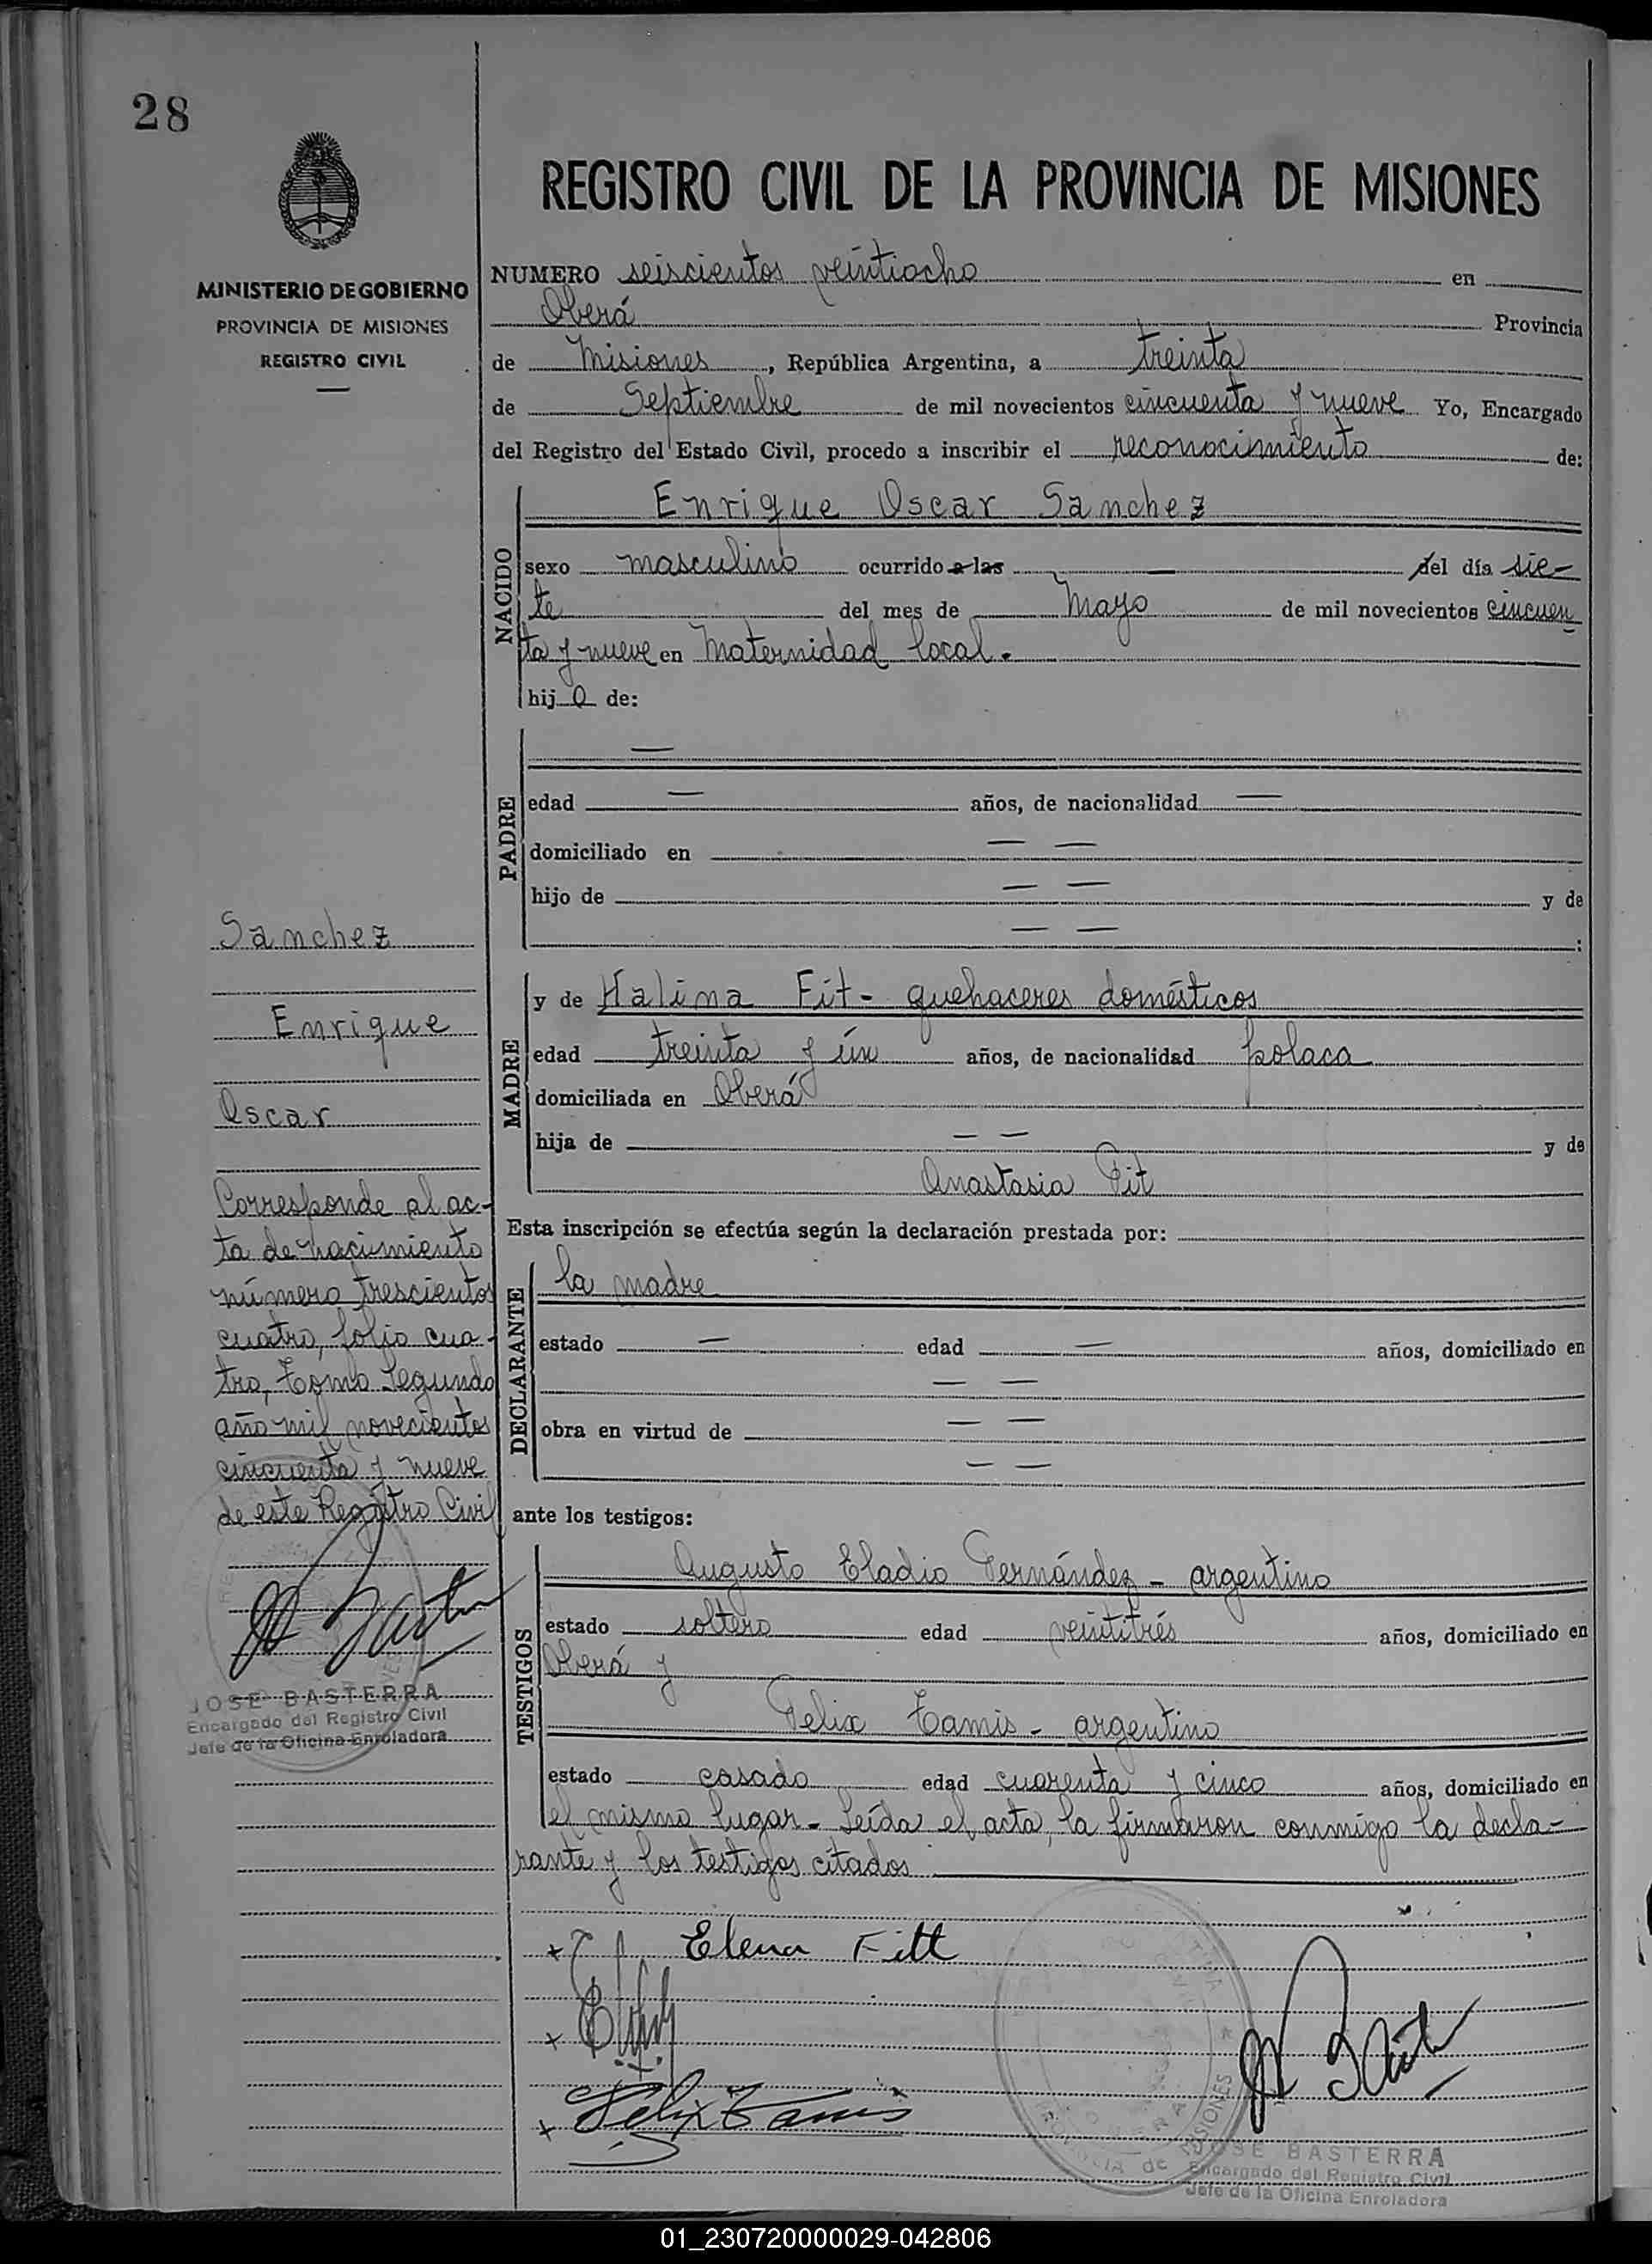 28
REGISTRO CIVIL DE LA PROVINCIA DE MISIONES
MINISTERIO DE GOBIERNO
PROVINCIA DE MISIONES
REGISTRO CIVIL
NUMERO seiscientos veintiocho en
Oberá Provincia
de Misiones, República Argentina, a treinta
de Septiembre de mil novecientos cincuenta y nueve Yo, Encargado
del Registro del Estado Civil, procedo a inscribir el reconocimiento de:
NACIDO
Enrique Oscar Sanchez
sexo masculino ocurrido a las — del día sie-
te del mes de Mayo de mil novecientos cincuen
ta y nueve en Maternidad local.
hijo de:
PADRE
—
edad — años, de nacionalidad —
domiciliado en — —
hijo de — — y de
— — :
MADRE
y de Halina Fit - quehaceres domésticos
edad treinta y ún años, de nacionalidad polaca
domiciliada en Oberá
hija de — — y de
Anastasia Fit
Esta inscripción se efectúa según la declaración prestada por:
DECLARANTE
la madre
estado — edad — años, domiciliado en
— —
obra en virtud de — —
— —
ante los testigos:
TESTIGOS
Augusto Eladio Fernández - argentino
estado soltero edad veintitrés años, domiciliado en
Oberá y
Felix Tamis - argentino
estado casado edad cuarenta y cinco años, domiciliado en
el mismo lugar - Leída el acta, la firmaron conmigo la decla-
rante y los testigos citados
Sanchez
Enrique
Oscar
Corresponde al ac-
ta de nacimiento
número trescientos
cuatro, folio cua-
tro, Tomo Segundo
año mil novecientos
cincuenta y nueve
de este Registro Civil
JOSE BASTERRA
Encargado del Registro Civil
Jefe de la Oficina Enroladora
+ Elena Fitt
+
+ Felix Tamis
PROVINCIA de MISIONES
JOSE BASTERRA
Encargado del Registro Civil
Jefe de la Oficina Enroladora
01_230720000029-042806